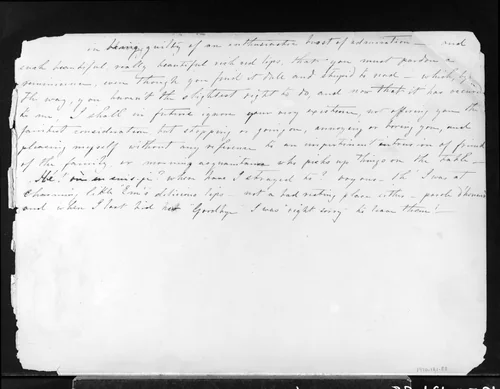 in being guilty of an enthusiastic burst of admiration — and
such beautiful really beautiful rich red lips, that you must pardon a
reminiscence, even though you find it dull and stupid to read — which, by
the way, you haven't the slightest right to do, and now that it has occurred
to me, I shall in future ignore your very existence, not offering you the
faintest consideration but skipping or going on, annoying or boring you, and
pleasing myself without any reference to an impertinent intrusion of friends
of the family, or morning acquaintance who picks up things on the table —
when have I strayed to? anyone — Oh! I was at
charming little Em's delicious lips — not a bad resting place either — parole d'honneur
and when I last bid her "Goodbye" I was right sorry to leave them! —